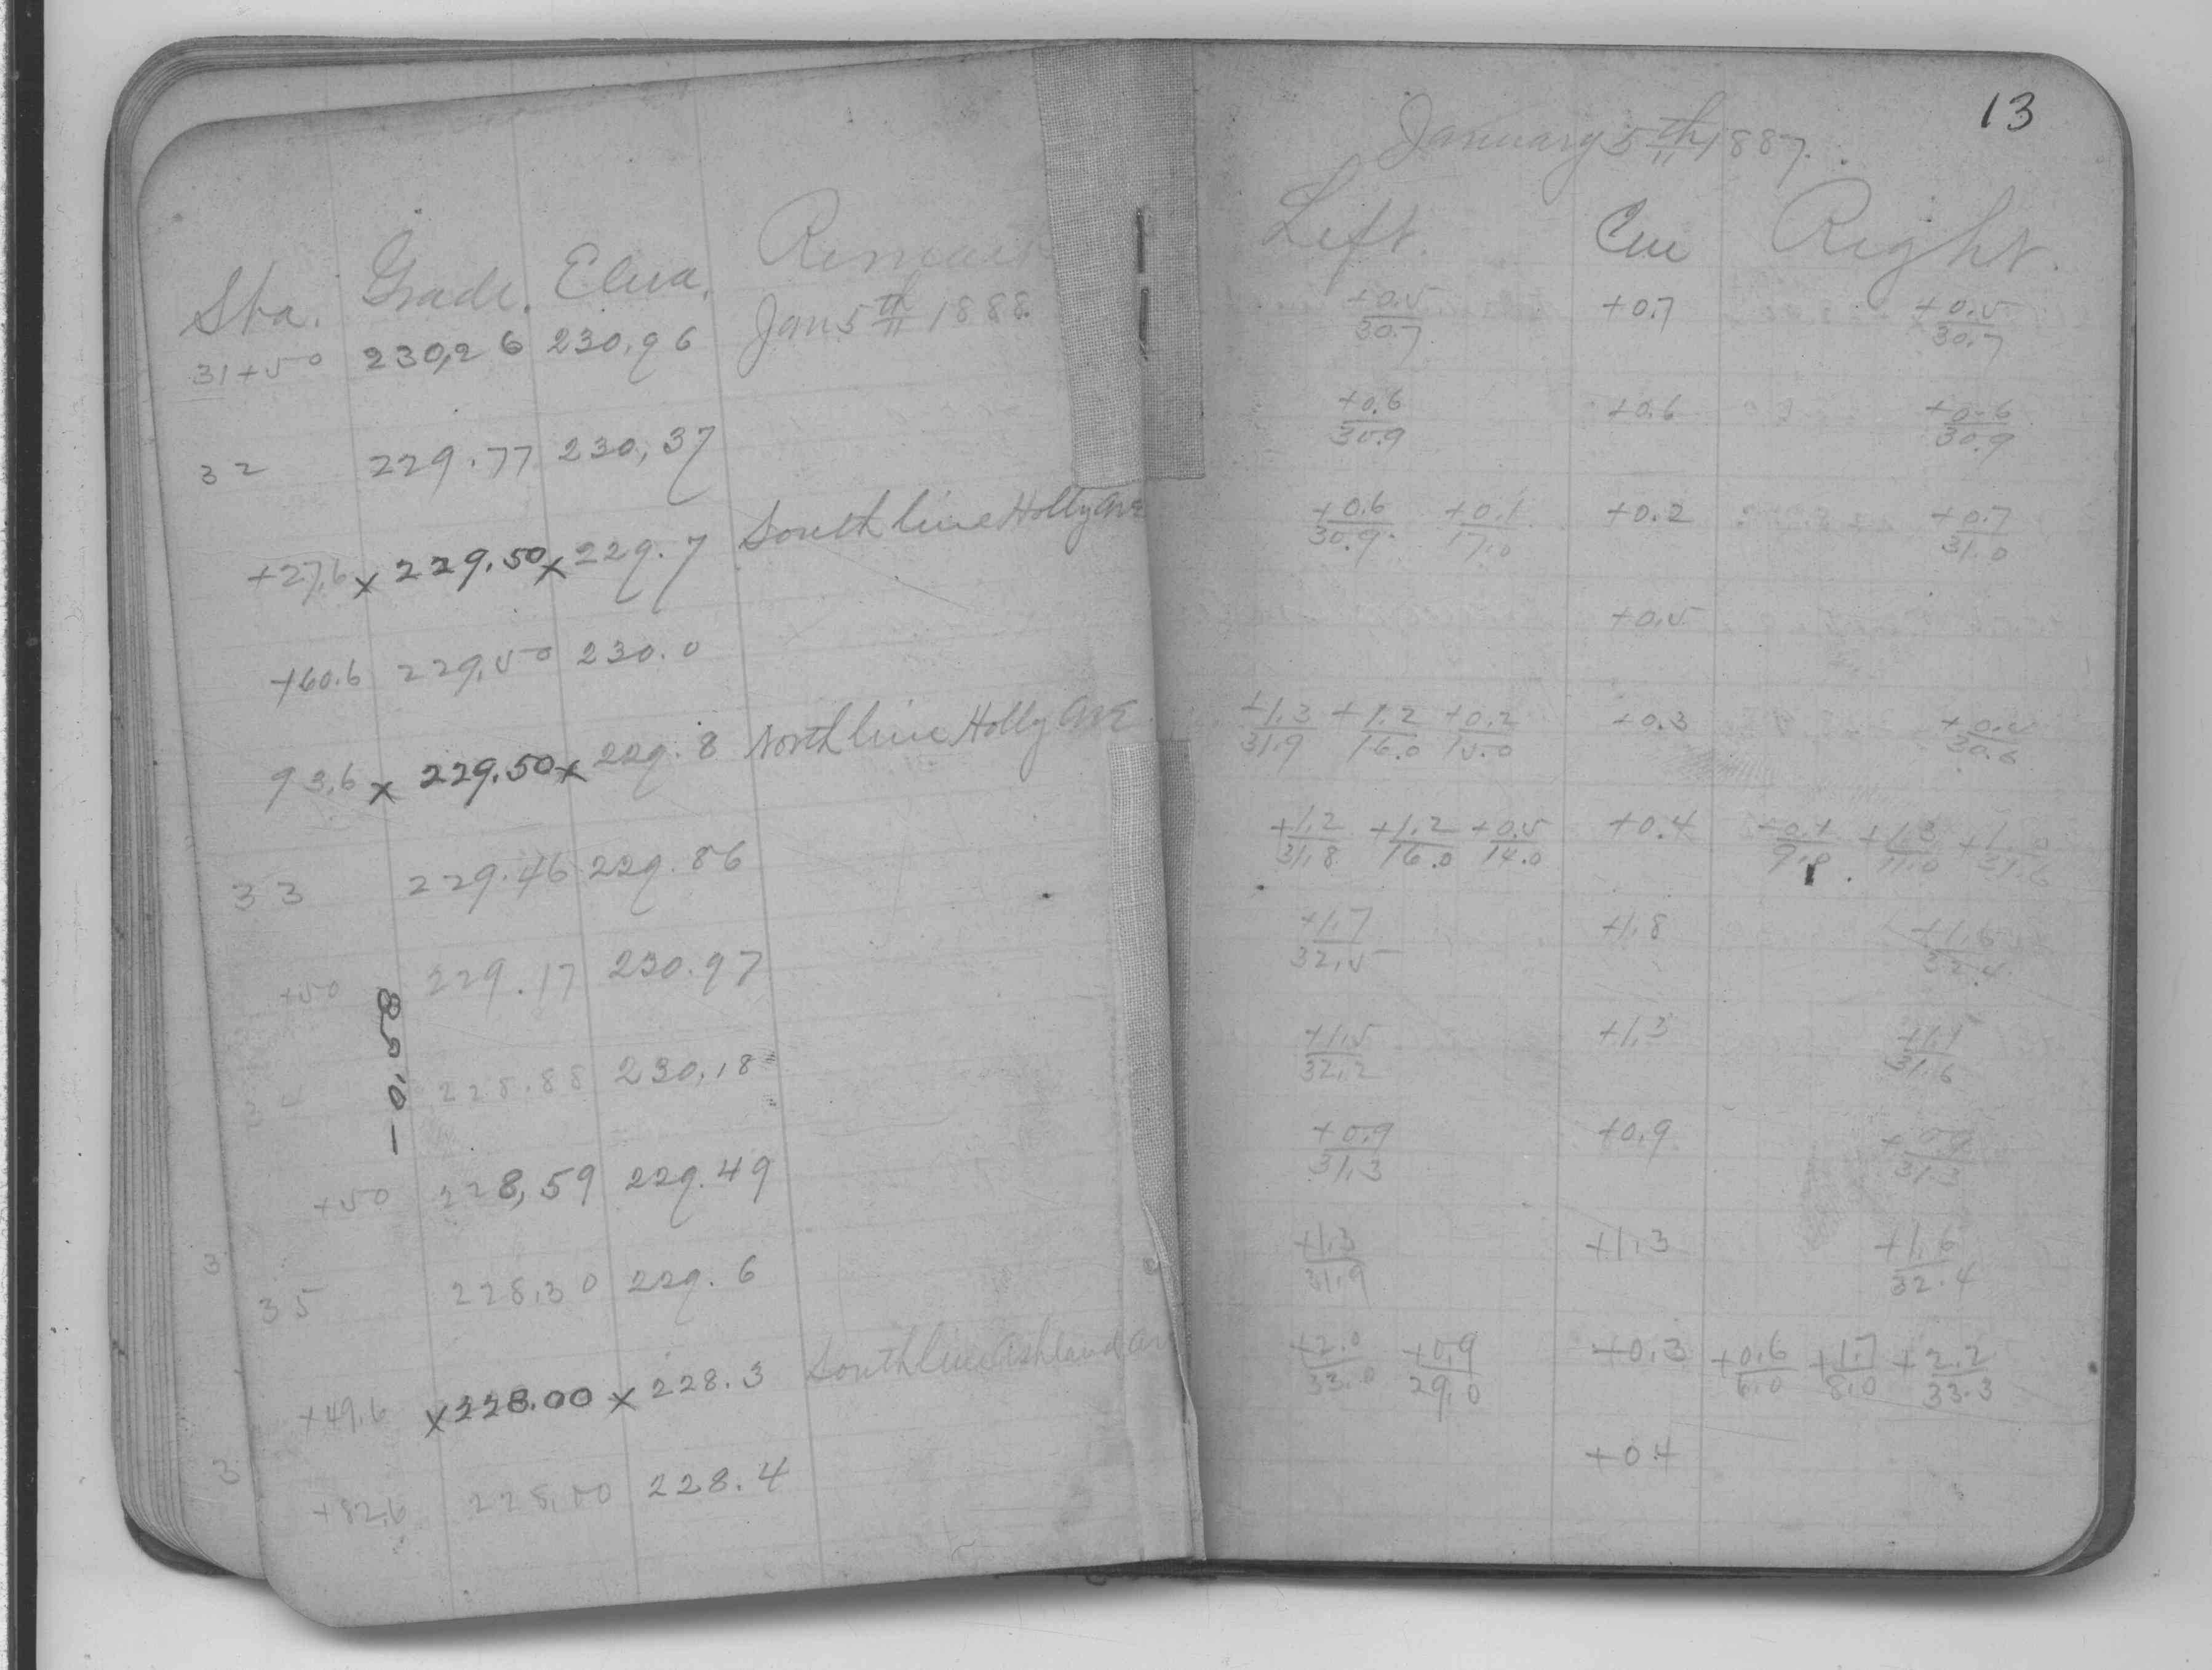 Sta. Grade. Eleva. Remark
31+50 230.26 230.96 Jan 5th 1888.
32 229.77 230.37
+27.6 x 229.50 x 229.7 South line Holly Ave
+60.6 229.50 230.0
93.6 x 229.50 x 229.8 North line Holly Ave
33 229.46 229.86
+50 229.17 230.97
34 228.88 230.18
- 0.58
+50 228.59 229.49
35 228.30 229.6
+49.6 x 228.00 x 228.3 South line Ashland Av
+82.6 228.00 228.4
3
3
13
January 5th 1887.
Left. Cen Right.
+0.5/30.7 +0.7 +0.5/30.7
+0.6/30.9 +0.6 +0.6/30.9
+0.6/30.9 +0.1/17.0 +0.2 +0.7/31.0
+0.5
+1.3/31.9 +1.2/16.0 +0.2/15.0 +0.3
+1.2/31.8 +1.2/16.0 +0.5/14.0 +0.4 +0.4/9.0 +1.3/11.0 +1.0/31.6
+1.7/32.5 +1.8 +1.6/32.4
+1.5/32.2 +1.3 +1.1/31.6
+0.9/31.3 +0.9 +0.9/31.3
+1.3/31.9 +1.3 +1.6/32.4
+2.0/33.0 +0.9/29.0 +0.3 +0.6/6.0 +1.7/8.0 +2.2/33.3
+0.4